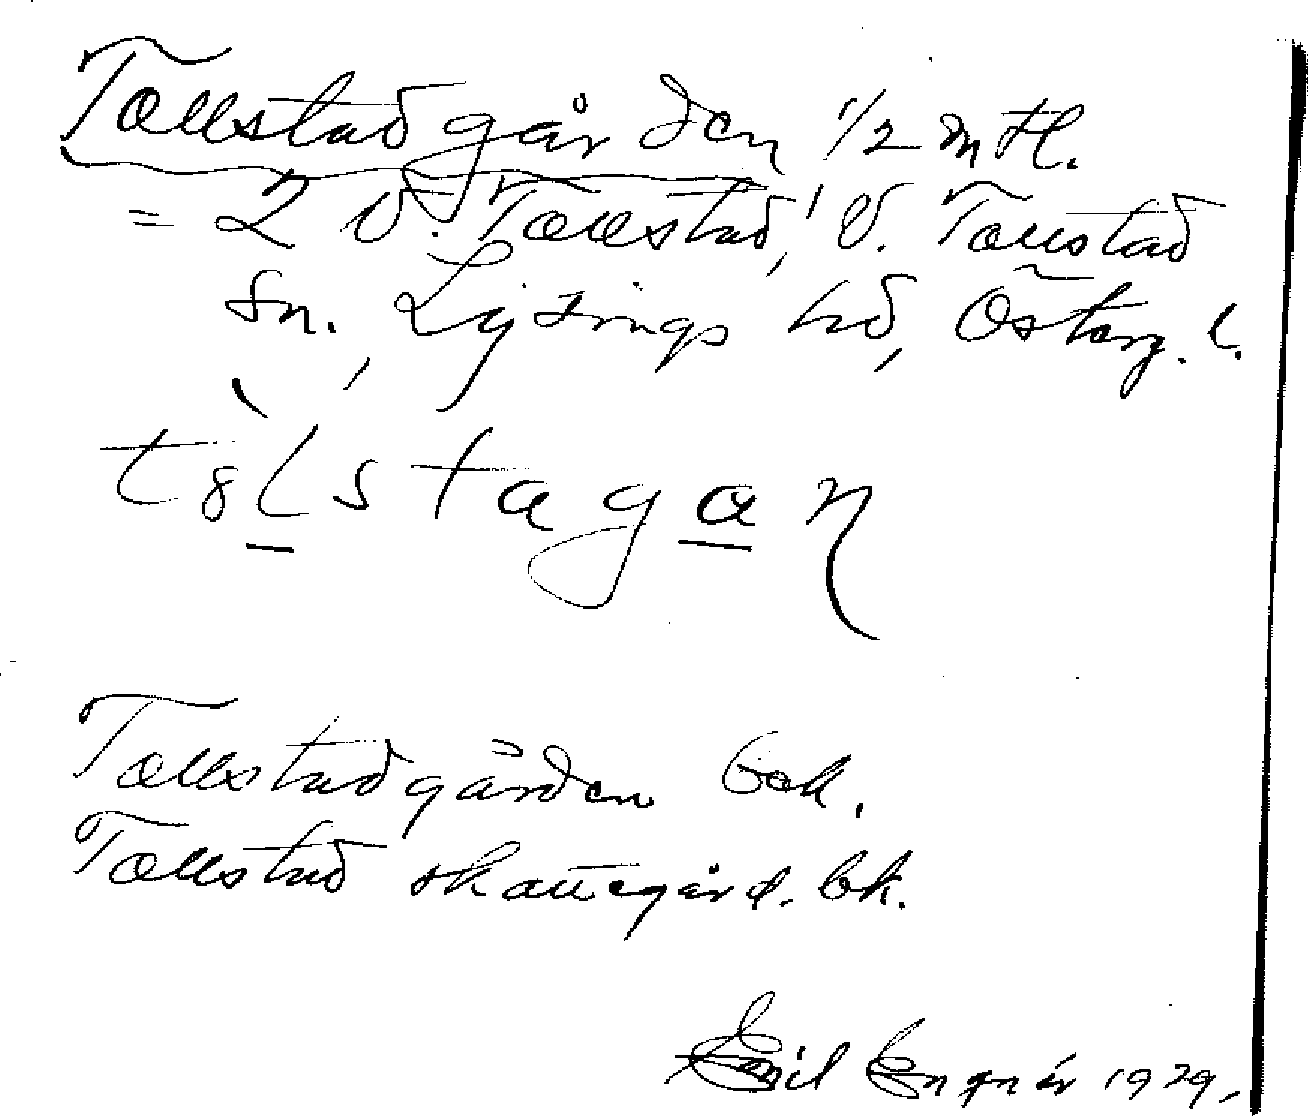 Tollstadgården 1/2 mtl.
= 2 V. Tollstad, V. Tollstad
sn., Lysings hd, Österg. l.
Tollstadgården Gek.
Tollstad skattegård. bk.
Emil Engnér 1929.